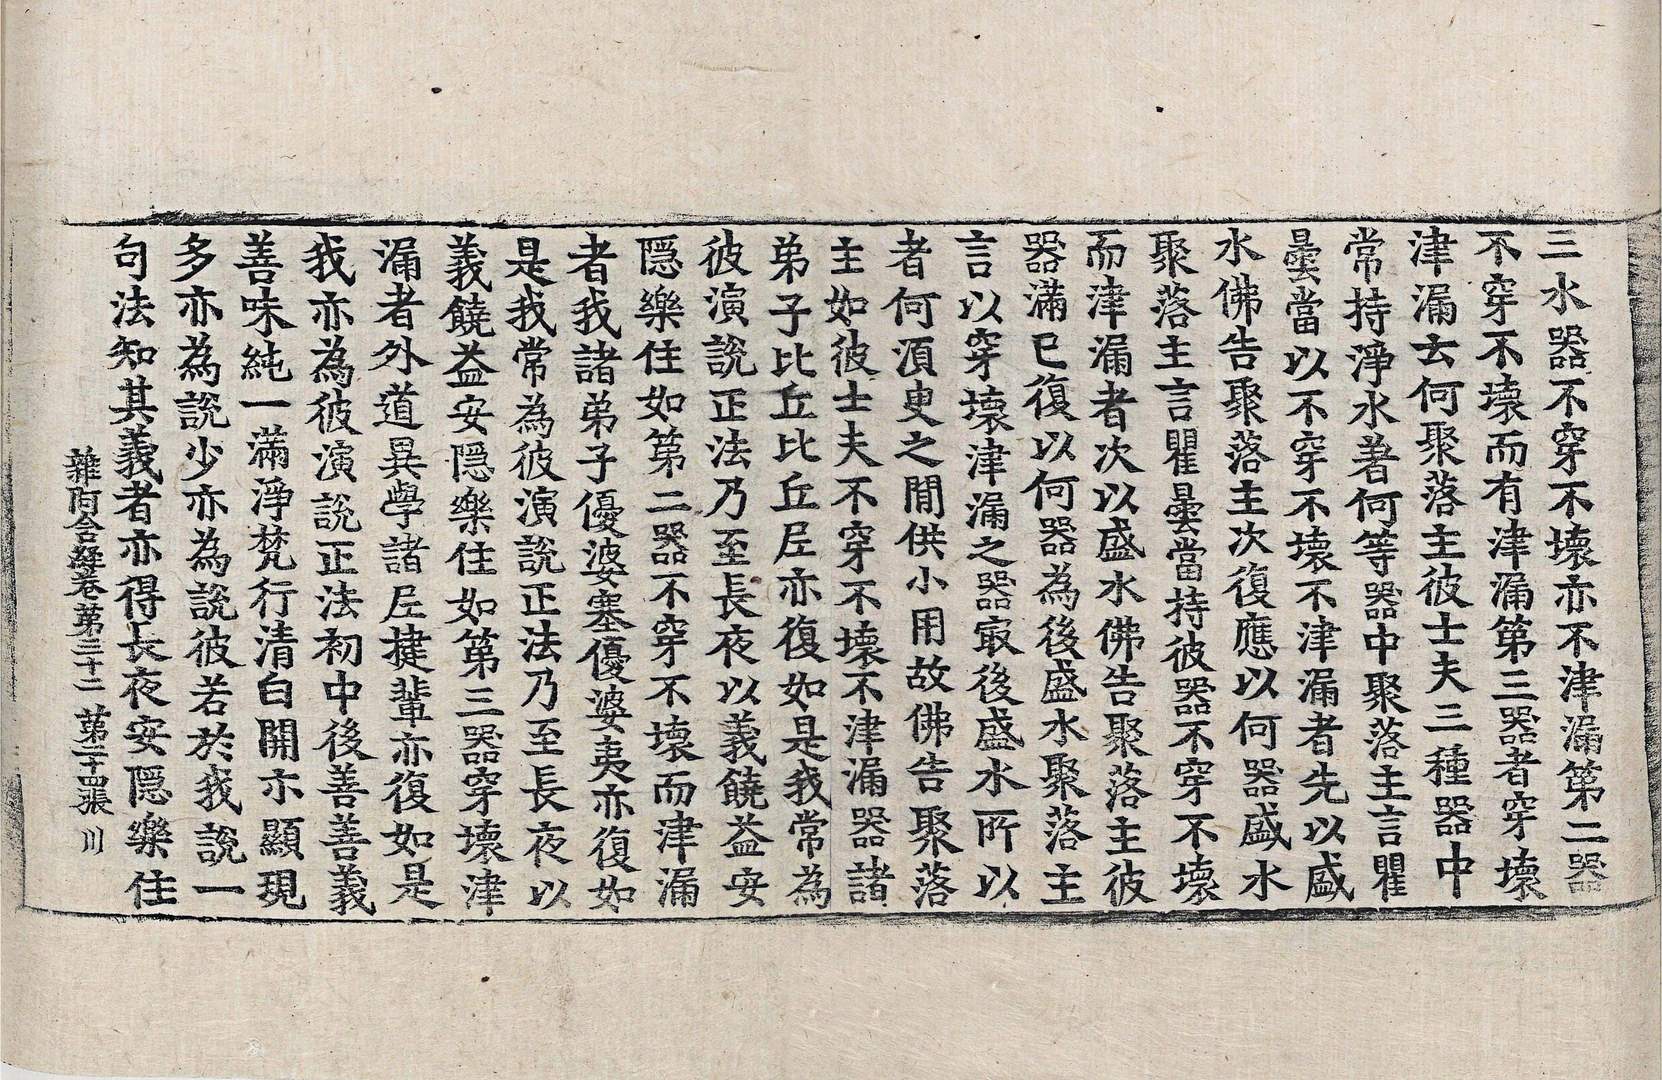 三水器不穿不壞亦不津漏第二器
不穿不壞而有津漏第三器者穿壞
津漏云何聚落主彼士夫三種器中
常持淨水著何等器中聚落主言瞿
曇當以不穿不壞不津漏者先以盛
水佛告聚落主次復應以何器盛水
聚落主言瞿曇當持彼器不穿不壞
而津漏者次以盛水佛告聚落主彼
器滿已復以何器為後盛水聚落主
言以穿壞津漏之器㝡後盛水所以
者何湏臾之閒供小用故佛告聚落
主如彼士夫不穿不壞不津漏器諸
弟子比丘比丘尼亦復如是我常為
彼演說正法乃至長夜以義饒益安
隱樂住如第二器不穿不壞而津漏
者我諸弟子優婆塞優婆夷亦復如
是我常為彼演說正法乃至長夜以
義饒益安隱樂住如第三器穿壞津
漏者外道異學諸尼揵輩亦復如是
我亦為彼演說正法初中後善善義
善味純一滿淨梵行清白開示顯現
多亦為說少亦為說彼若於我說一
句法知其義者亦得長夜安隱樂住
雜阿含經卷第三十二 第二十四張 川